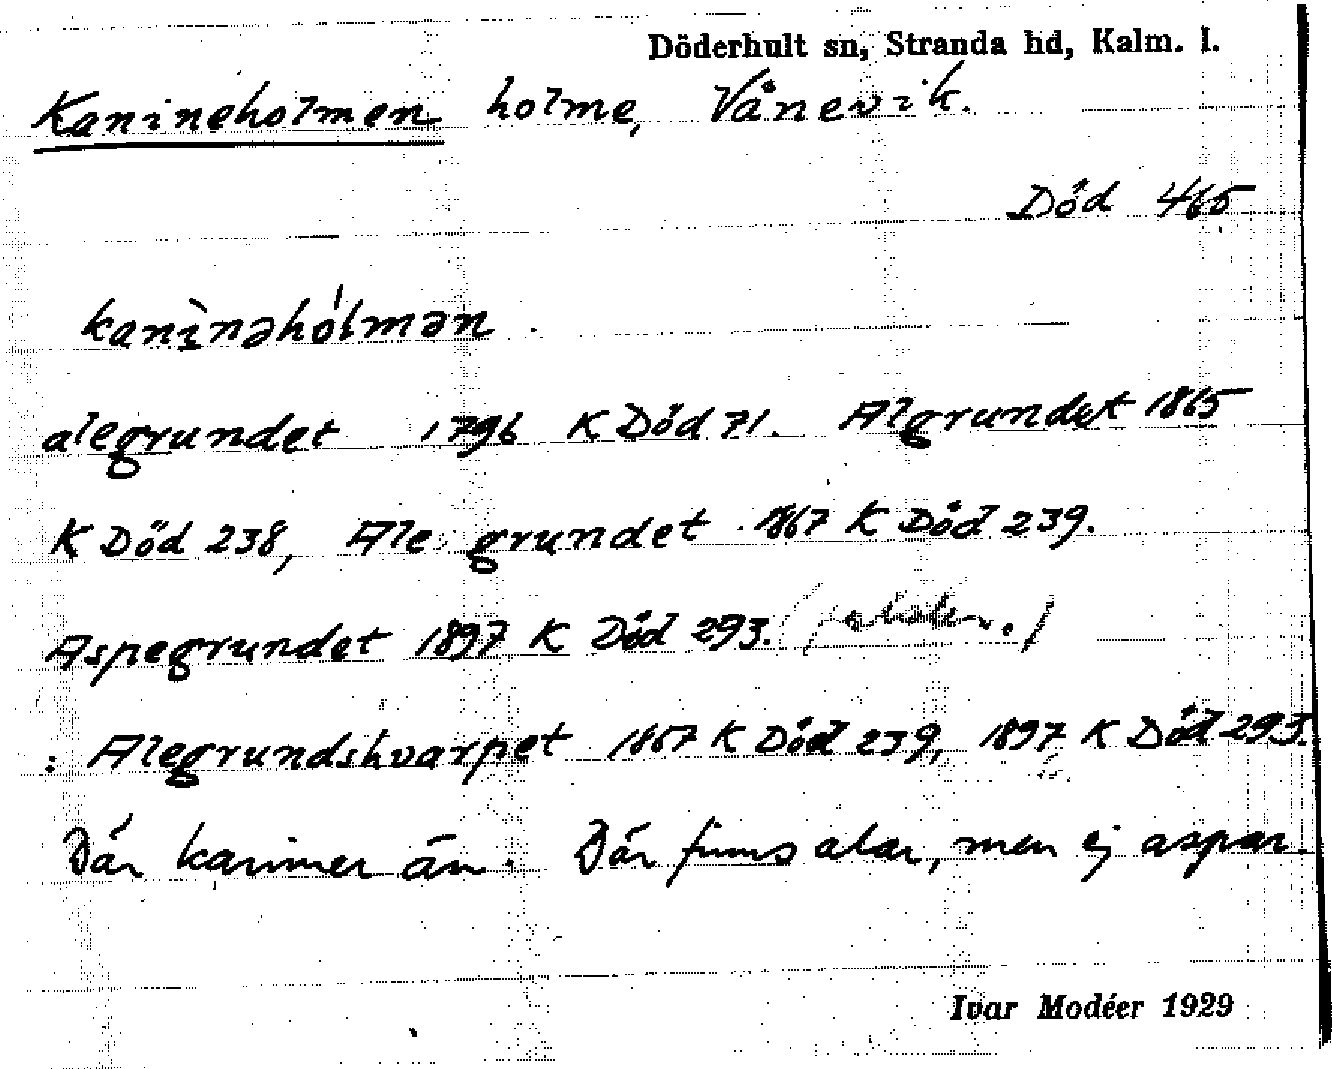 Döderhult sn, Stranda hd, Kalm. l.
Kanineholmen holme, Vånevik.
Död 465
kanìnəhólmən
alegrundet 1796 K Död 71. Algrundet 1865
K Död 238, Ale grundet 1867 K Död 239.
Aspegrundet 1897 K Död 293.
: Alegrundshvarpet 1867 K Död 239, 1897 K Död 293.
Där kaniner än. Där finns alar, men ej aspar.
Ivar Modéer 1929